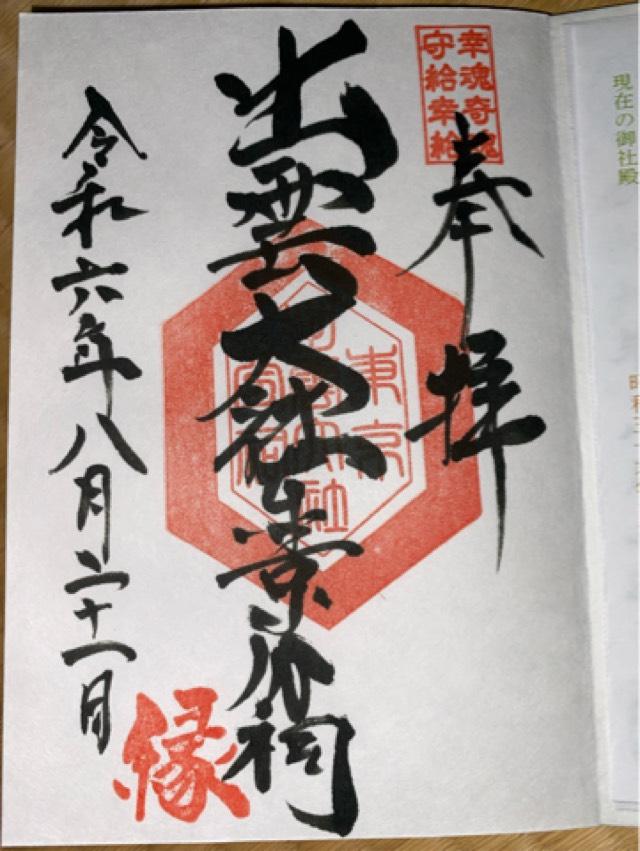 現在の御社殿
幸魂奇魂
守給幸給
奉拝
出雲大社東京分祠
東京
令和六年八月二十一日
縁